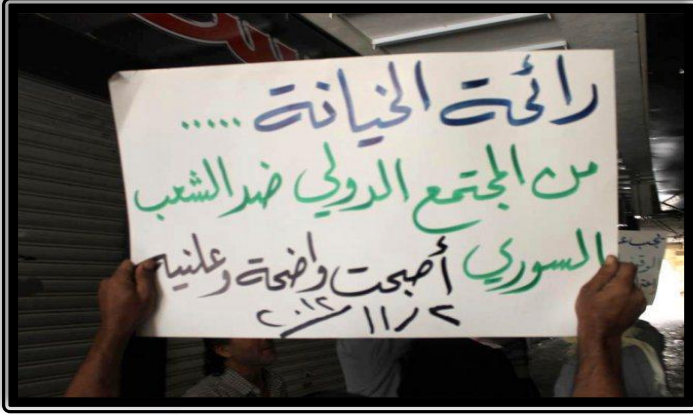 رائحة الخيانة .....
من المجتمع الدولي ضد الشعب
السوري أصبحت واضحة وعلنيه
٢٠١٢/١١/٢